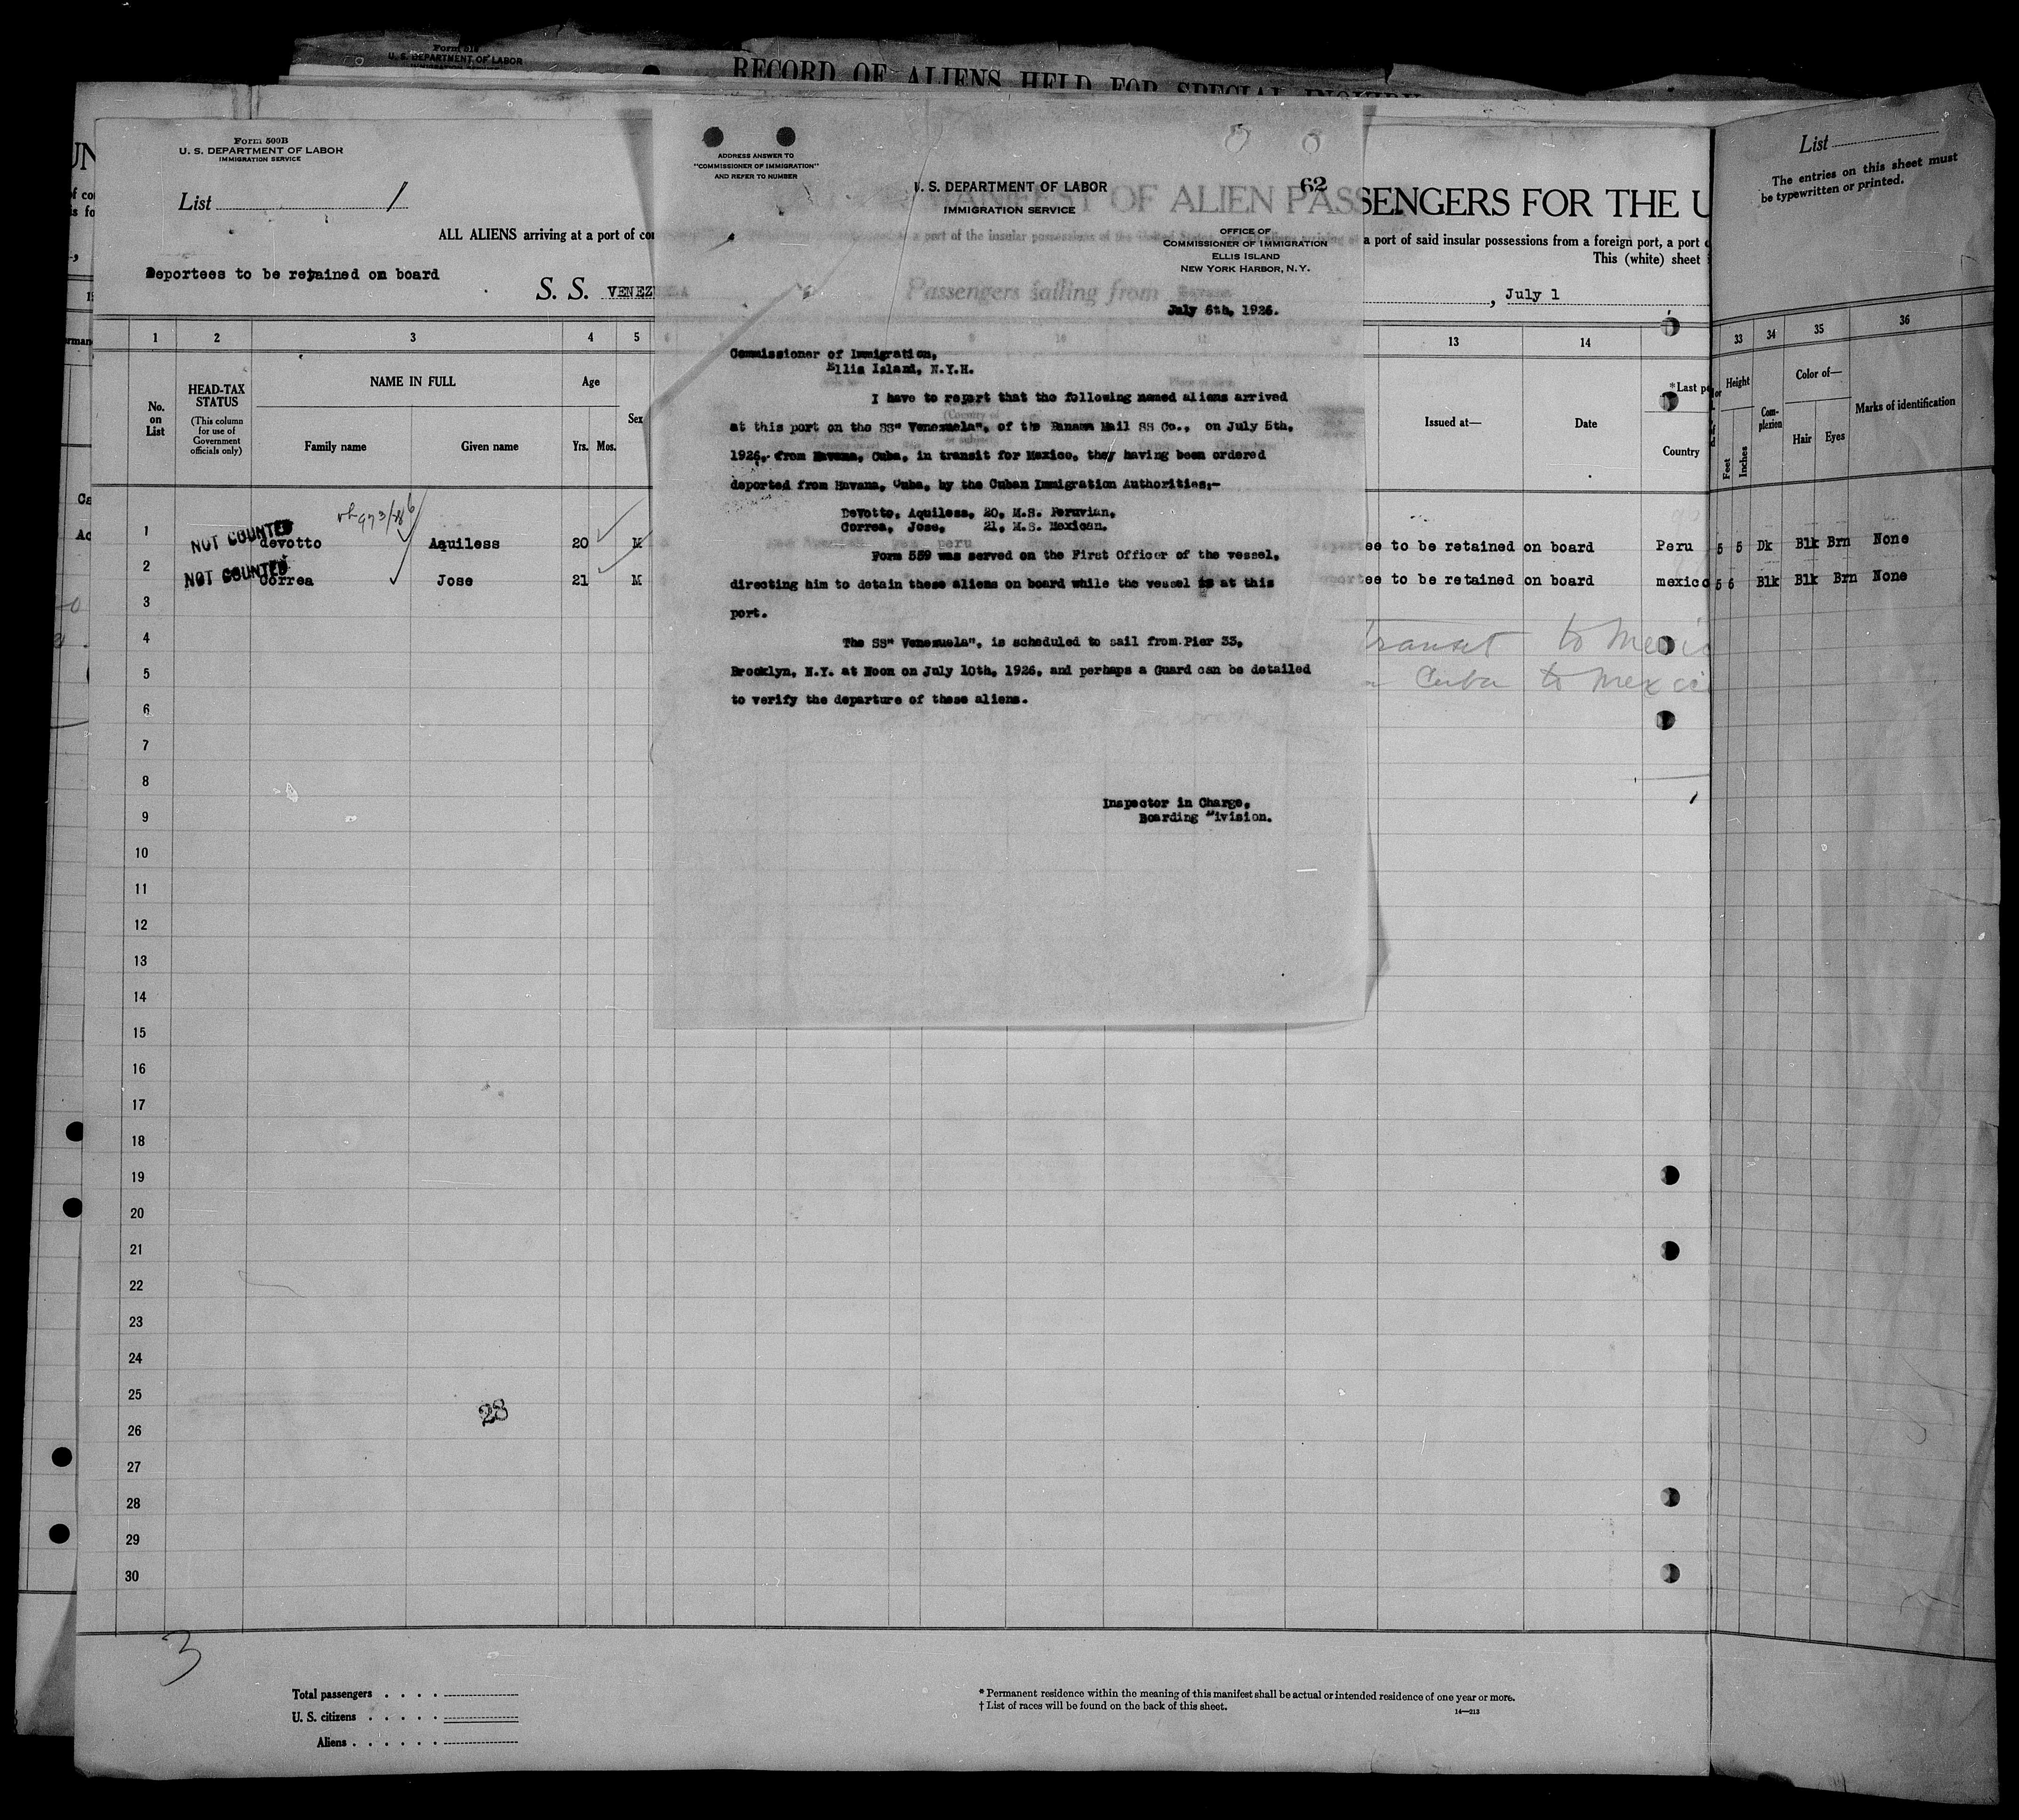 Form 519
U. S. DEPARTMENT OF LABOR
RECORD OF ALIENS HELD FOR SPECIAL INQUIRY
Form 500B
U. S. DEPARTMENT OF LABOR
IMMIGRATION SERVICE
List 1
MANIFEST OF ALIEN PASSENGERS FOR THE U
ALL ALIENS arriving at a port of con
a port of the insular possessions of the United States
a port of said insular possessions from a foreign port, a port o
This (white) sheet
Deportees to be retained on board
S. S. VENEZUELA
Passengers sailing from Havana
, July 1
ADDRESS ANSWER TO
"COMMISSIONER OF IMMIGRATION"
AND REFER TO NUMBER
U. S. DEPARTMENT OF LABOR
IMMIGRATION SERVICE
62
OFFICE OF
COMMISSIONER OF IMMIGRATION
ELLIS ISLAND
NEW YORK HARBOR, N.Y.
July 6th, 1926.
Commissioner of Immigration,
Ellis Island, N.Y.H.
I have to report that the following named aliens arrived
at this port on the SS" Venezuela", of the Panama Mail SS Co., on July 5th,
1926, from Havana, Cuba, in transit for Mexico, they having been ordered
deported from Havana, Cuba, by the Cuban Immigration Authorities;-
DeVotto, Aquiless, 20, M.S. Peruvian,
Correa, Jose, 21, M.S. Mexican.
Form 559 was served on the First Officer of the vessel,
directing him to detain these aliens on board while the vessel is at this
port.
The SS" Venezuela", is scheduled to sail from Pier 33,
Brooklyn, N.Y. at Noon on July 10th, 1926, and perhaps a Guard can be detailed
to verify the departure of these aliens.
Inspector in Charge,
Boarding Division.
1 2 3 4 5
13 14
No. on List
HEAD-TAX STATUS
(This column for use of Government officials only)
NAME IN FULL
Family name
Given name
Age
Yrs. Mos.
Sex
Issued at—
Date
*Last pe
Country
1 NOT COUNTED devotto Aquiless 20 M
ee to be retained on board Peru
2 NOT COUNTED Correa Jose 21 M
ee to be retained on board mexico
transit to Mexic
Cuba to Mexic
3
4
5
6
7
8
9
10
11
12
13
14
15
16
17
18
19
20
21
22
23
24
25
26
27
28
29
30
28
3
Total passengers
U. S. citizens
Aliens
* Permanent residence within the meaning of this manifest shall be actual or intended residence of one year or more.
† List of races will be found on the back of this sheet.
14—213
List
The entries on this sheet must
be typewritten or printed.
33 34 35 36
Height
Feet Inches
Complexion
Color of—
Hair Eyes
Marks of identification
5 5 Dk Blk Brn None
5 6 Blk Blk Brn None